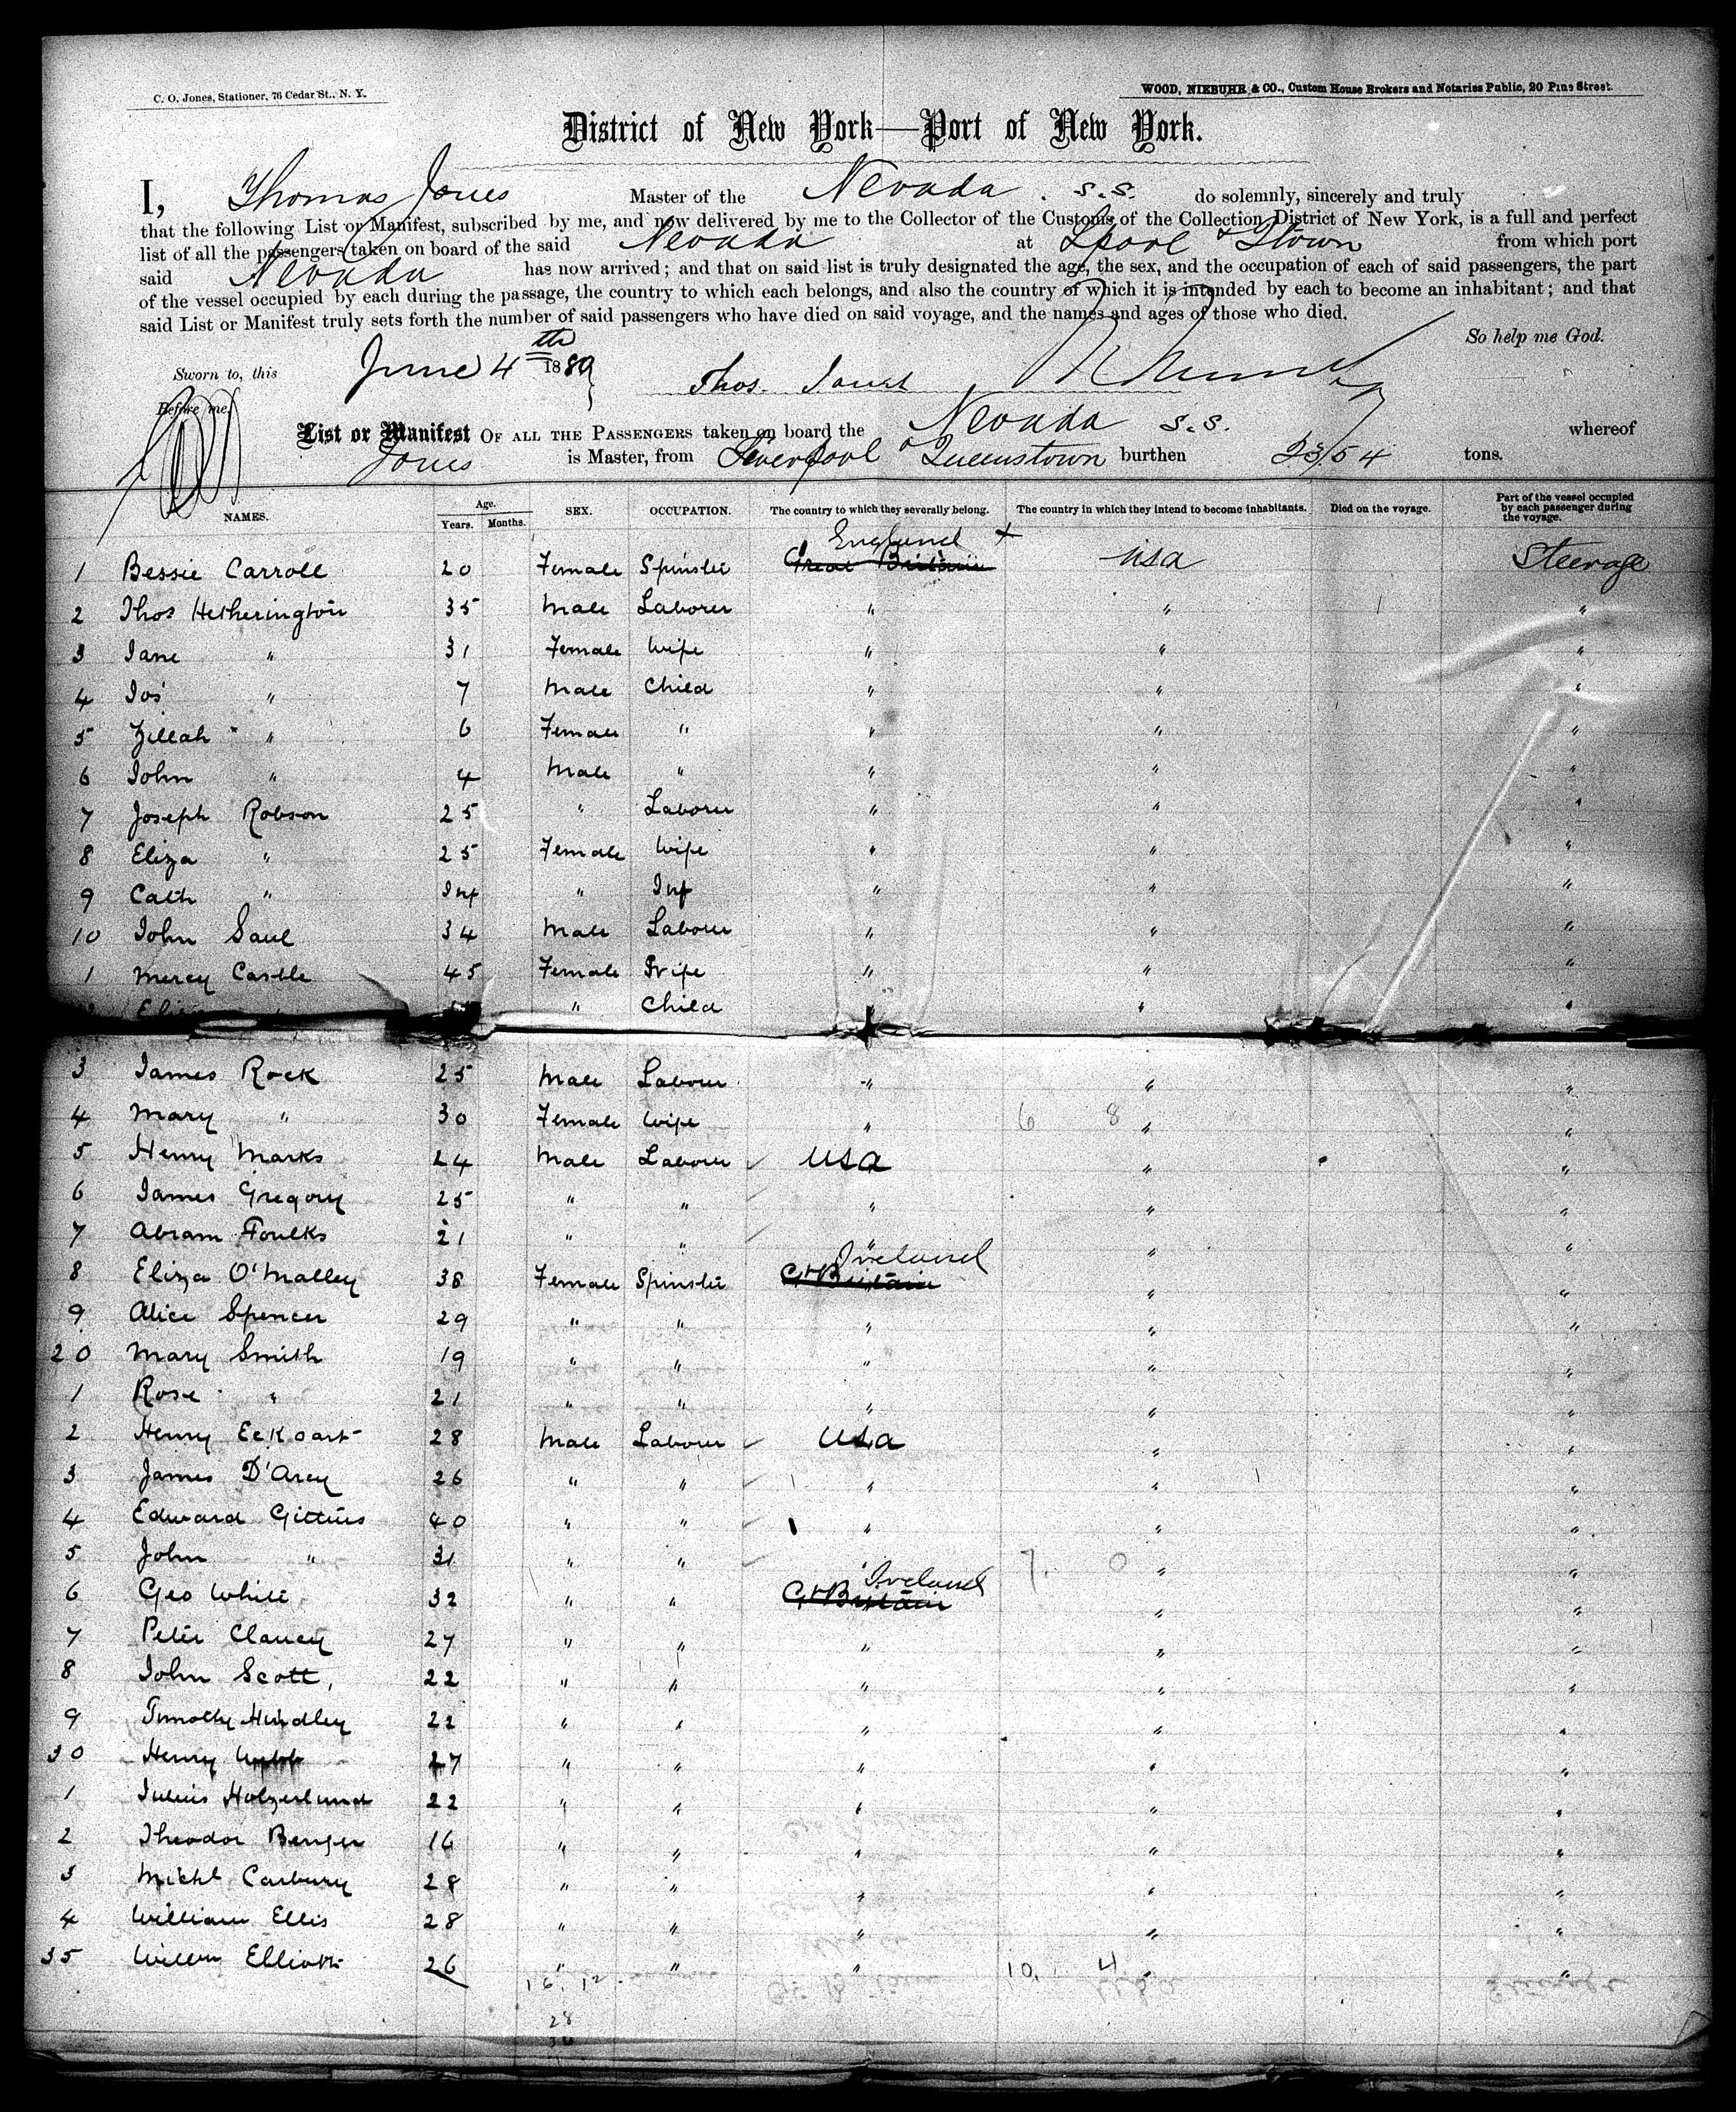 C. O. Jones, Stationer, 76 Cedar St., N. Y.
WOOD, NIEBUHR & CO., Custom House Brokers and Notaries Public, 20 Pine Street.
District of New York—Port of New York.
I, Thomas Jones Master of the Nevada . s.s. do solemnly, sincerely and truly
that the following List or Manifest, subscribed by me, and now delivered by me to the Collector of the Customs of the Collection District of New York, is a full and perfect
list of all the passengers taken on board of the said Nevada at Lpool & Qtown from which port
said Nevada has now arrived; and that on said list is truly designated the age, the sex, and the occupation of each of said passengers, the part
of the vessel occupied by each during the passage, the country to which each belongs, and also the country of which it is intended by each to become an inhabitant; and that
said List or Manifest truly sets forth the number of said passengers who have died on said voyage, and the names and ages of those who died.
So help me God.
Sworn to, this June 4th 1889 Thos. Jones
Before me,
List or Manifest OF ALL THE PASSENGERS taken on board the Nevada s.s. whereof
Jones is Master, from Liverpool & Queenstown burthen tons.
NAMES. Age. Years. Months. SEX. OCCUPATION. The country to which they severally belong. The country in which they intend to become inhabitants. Died on the voyage. Part of the vessel occupied by each passenger during the voyage.
England +
1 Bessie Carroll 20 Female Spinster Great Britain USA Steerage
2 Thos Hetherington 35 Male Laborer " " "
3 Jane " 31 Female Wife " " "
4 Jos " 7 Male Child " " "
5 Zillah " 6 Female " " " "
6 John " 4 Male " " " "
7 Joseph Robson 25 " Laborer " " "
8 Eliza " 25 Female Wife " " "
9 Cath " Inf " Inf " " "
10 John Saul 34 Male Laborer " " "
1 Mercy Castle 45 Female Wife " " "
" Child " " "
3 James Rock 25 Male Laborer " " "
4 Mary " 30 Female Wife " 6 8 " "
5 Henry Marks 24 Male Laborer USA " "
6 James Gregory 25 " " " " "
7 Abram Foulks 21 " " " " "
Ireland
8 Eliza O'Malley 38 Female Spinster Gt Britain " "
9 Alice Spencer 29 " " " " "
20 Mary Smith 19 " " " " "
1 Rose " 21 " " " " "
2 Henry Eckoart 28 Male Laborer USA " "
3 James D'Arcy 26 " " " " "
4 Edward Gittins 40 " " " " "
5 John " 31 " " " 7. 0 " "
Ireland
6 Geo White 32 " " Gt Britain " "
7 Peter Clancy 27 " " " " "
8 John Scott, 22 " " " " "
9 Timothy Hindley 22 " " " " "
30 Henry Webb 27 " " " " "
1 Julius Holzerlund 22 " " " " "
2 Theodor Berger 16 " " " " "
3 Michl Carbury 28 " " " " "
4 William Ellis 28 " " " " "
35 Willm Elliott 26 " " " 10. 4 " "
16. 12.
28